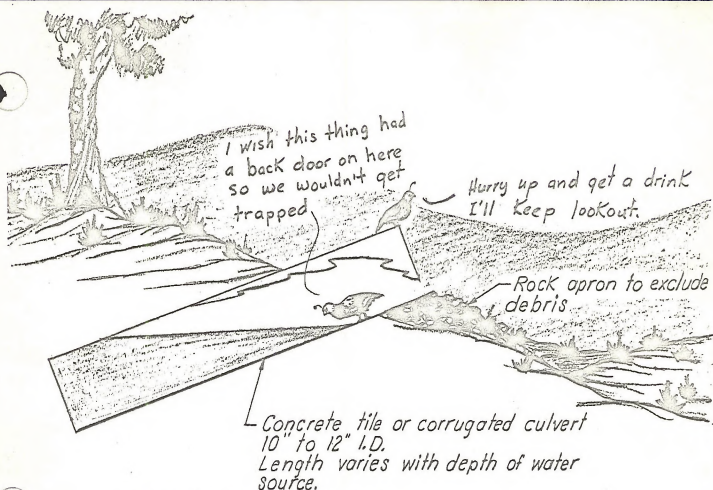 I wish this thing had
a back door on here
so we wouldn't get
trapped
Hurry up and get a drink
I'll keep lookout.
Rock apron to exclude
debris
Concrete tile or corrugated culvert
10" to 12" I.D.
Length varies with depth of water
source.